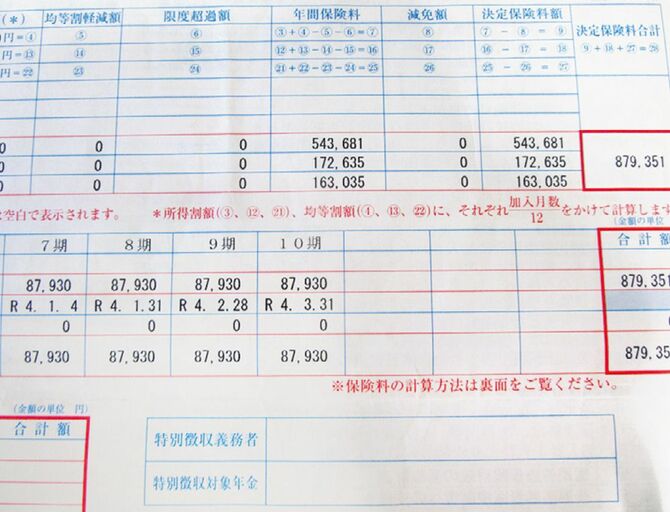 (*) 均等割軽減額 限度超過額 年間保険料 減免額 決定保険料額 決定保険料合計
円=④ ⑤ ⑥ ③+④-⑤-⑥=⑦ ⑧ ⑦-⑧=⑨ ⑨+⑱+㉗=㉘
円=⑬ ⑭ ⑮ ⑫+⑬-⑭-⑮=⑯ ⑰ ⑯-⑰=⑱
円=㉒ ㉓ ㉔ ㉑+㉒-㉓-㉔=㉕ ㉖ ㉕-㉖=㉗
0 0 0 543,681 0 543,681
0 0 0 172,635 0 172,635 879,351
0 0 0 163,035 0 163,035
空白で表示されます。 *所得割額(③、⑫、㉑)、均等割額(④、⑬、㉒)に、それぞれ 加入月数/12 をかけて計算します
(金額の単位
7期 8期 9期 10期 合計額
87,930 87,930 87,930 87,930 879,351
R 4. 1. 4 R 4. 1.31 R 4. 2.28 R 4. 3.31
0 0 0 0
87,930 87,930 87,930 87,930 879,35
※保険料の計算方法は裏面をご覧ください。
(金額の単位 円)
合計額
特別徴収義務者
特別徴収対象年金